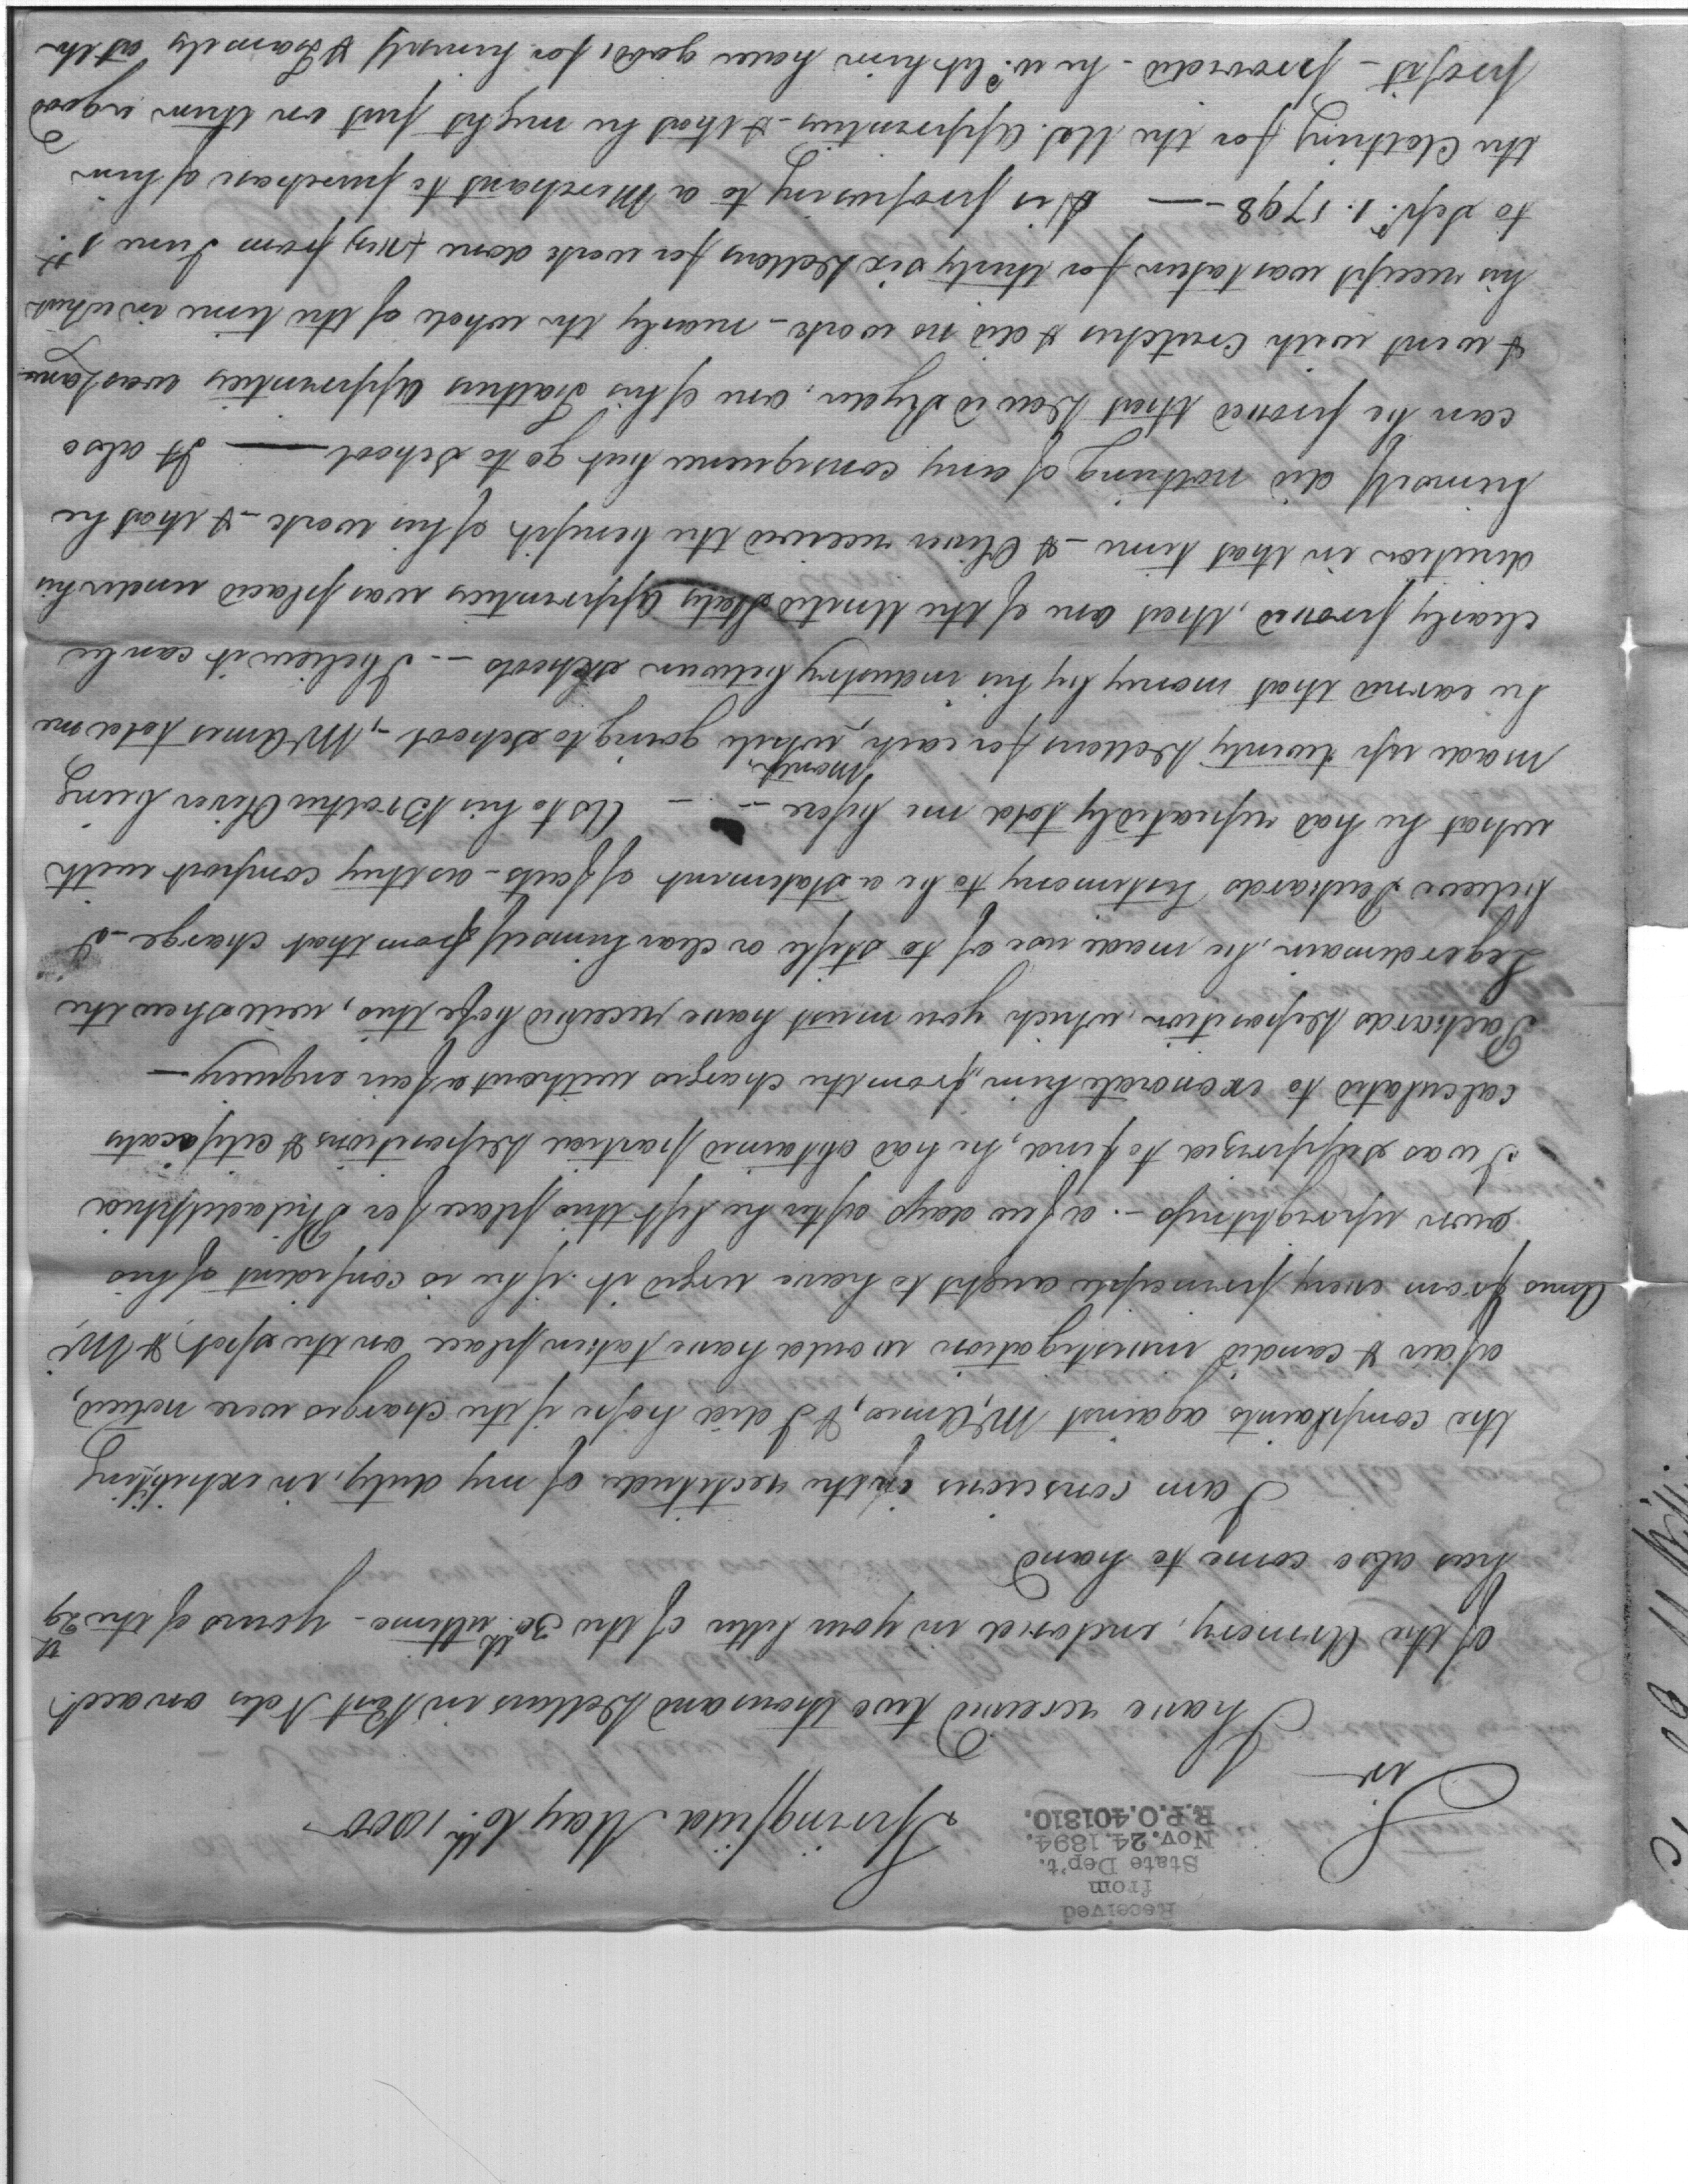 Received
from
State Dep't.
Nov. 24. 1894.
R.P.O. 401810.
Springfield May 6th. 1800
Sir
I have received two thousand Dollars in Post Notes on acct.
of the Armory, inclosed in your letter of the 30th. ultimo - yours of the 29th
has also come to hand
I am conscious of the rectitude of my duty, in exhibiting
the complaints against Mr. Ames, & I did hope if the charges were noticed,
a fair & candid investigation would have taken place on the spot, & Mr.
Ames from every principle ought to have urged it if he is confident of his
own uprightness - a few days after he left this place for Philadelphia
I was surprized to find, he had obtained partial Depositions & certificats
calculated to exonorate him, from the charges without a fair enquiry —
Packards Deposition, which you must have received before this, will shew the
Legerdemain, he made use of to stifle or clear himself from that charge - I
believe Packards testimony to be a statement of facts - as they comport with
what he had repeatedly told me before - - As to his Brother Oliver being
made up twenty Dollars for each month, while going to School -, Mr Ames told me
he earned that money by his industry between schools - - I believe it can be
clearly proved, that one of the United States apprentices was placed under his
direction in that time - & Oliver received the benefit of his work - & that he
himself did nothing of any consequence but go to School —— It also
can be proved that David Ryder, one of his Fathers apprentices was lame
& went with Crutches & did no work - nearly the whole of the time in which
his receipt was taken for thirty six Dollars for work done (viz) from June 1st.
to Sepr. 1. 1798 - — His proposing to a Merchant to purchase of him
the Clothing for the U.S. apprentices - & that he might put on them a good
profit - provided - he wd. let him have goods for himself & Family at the